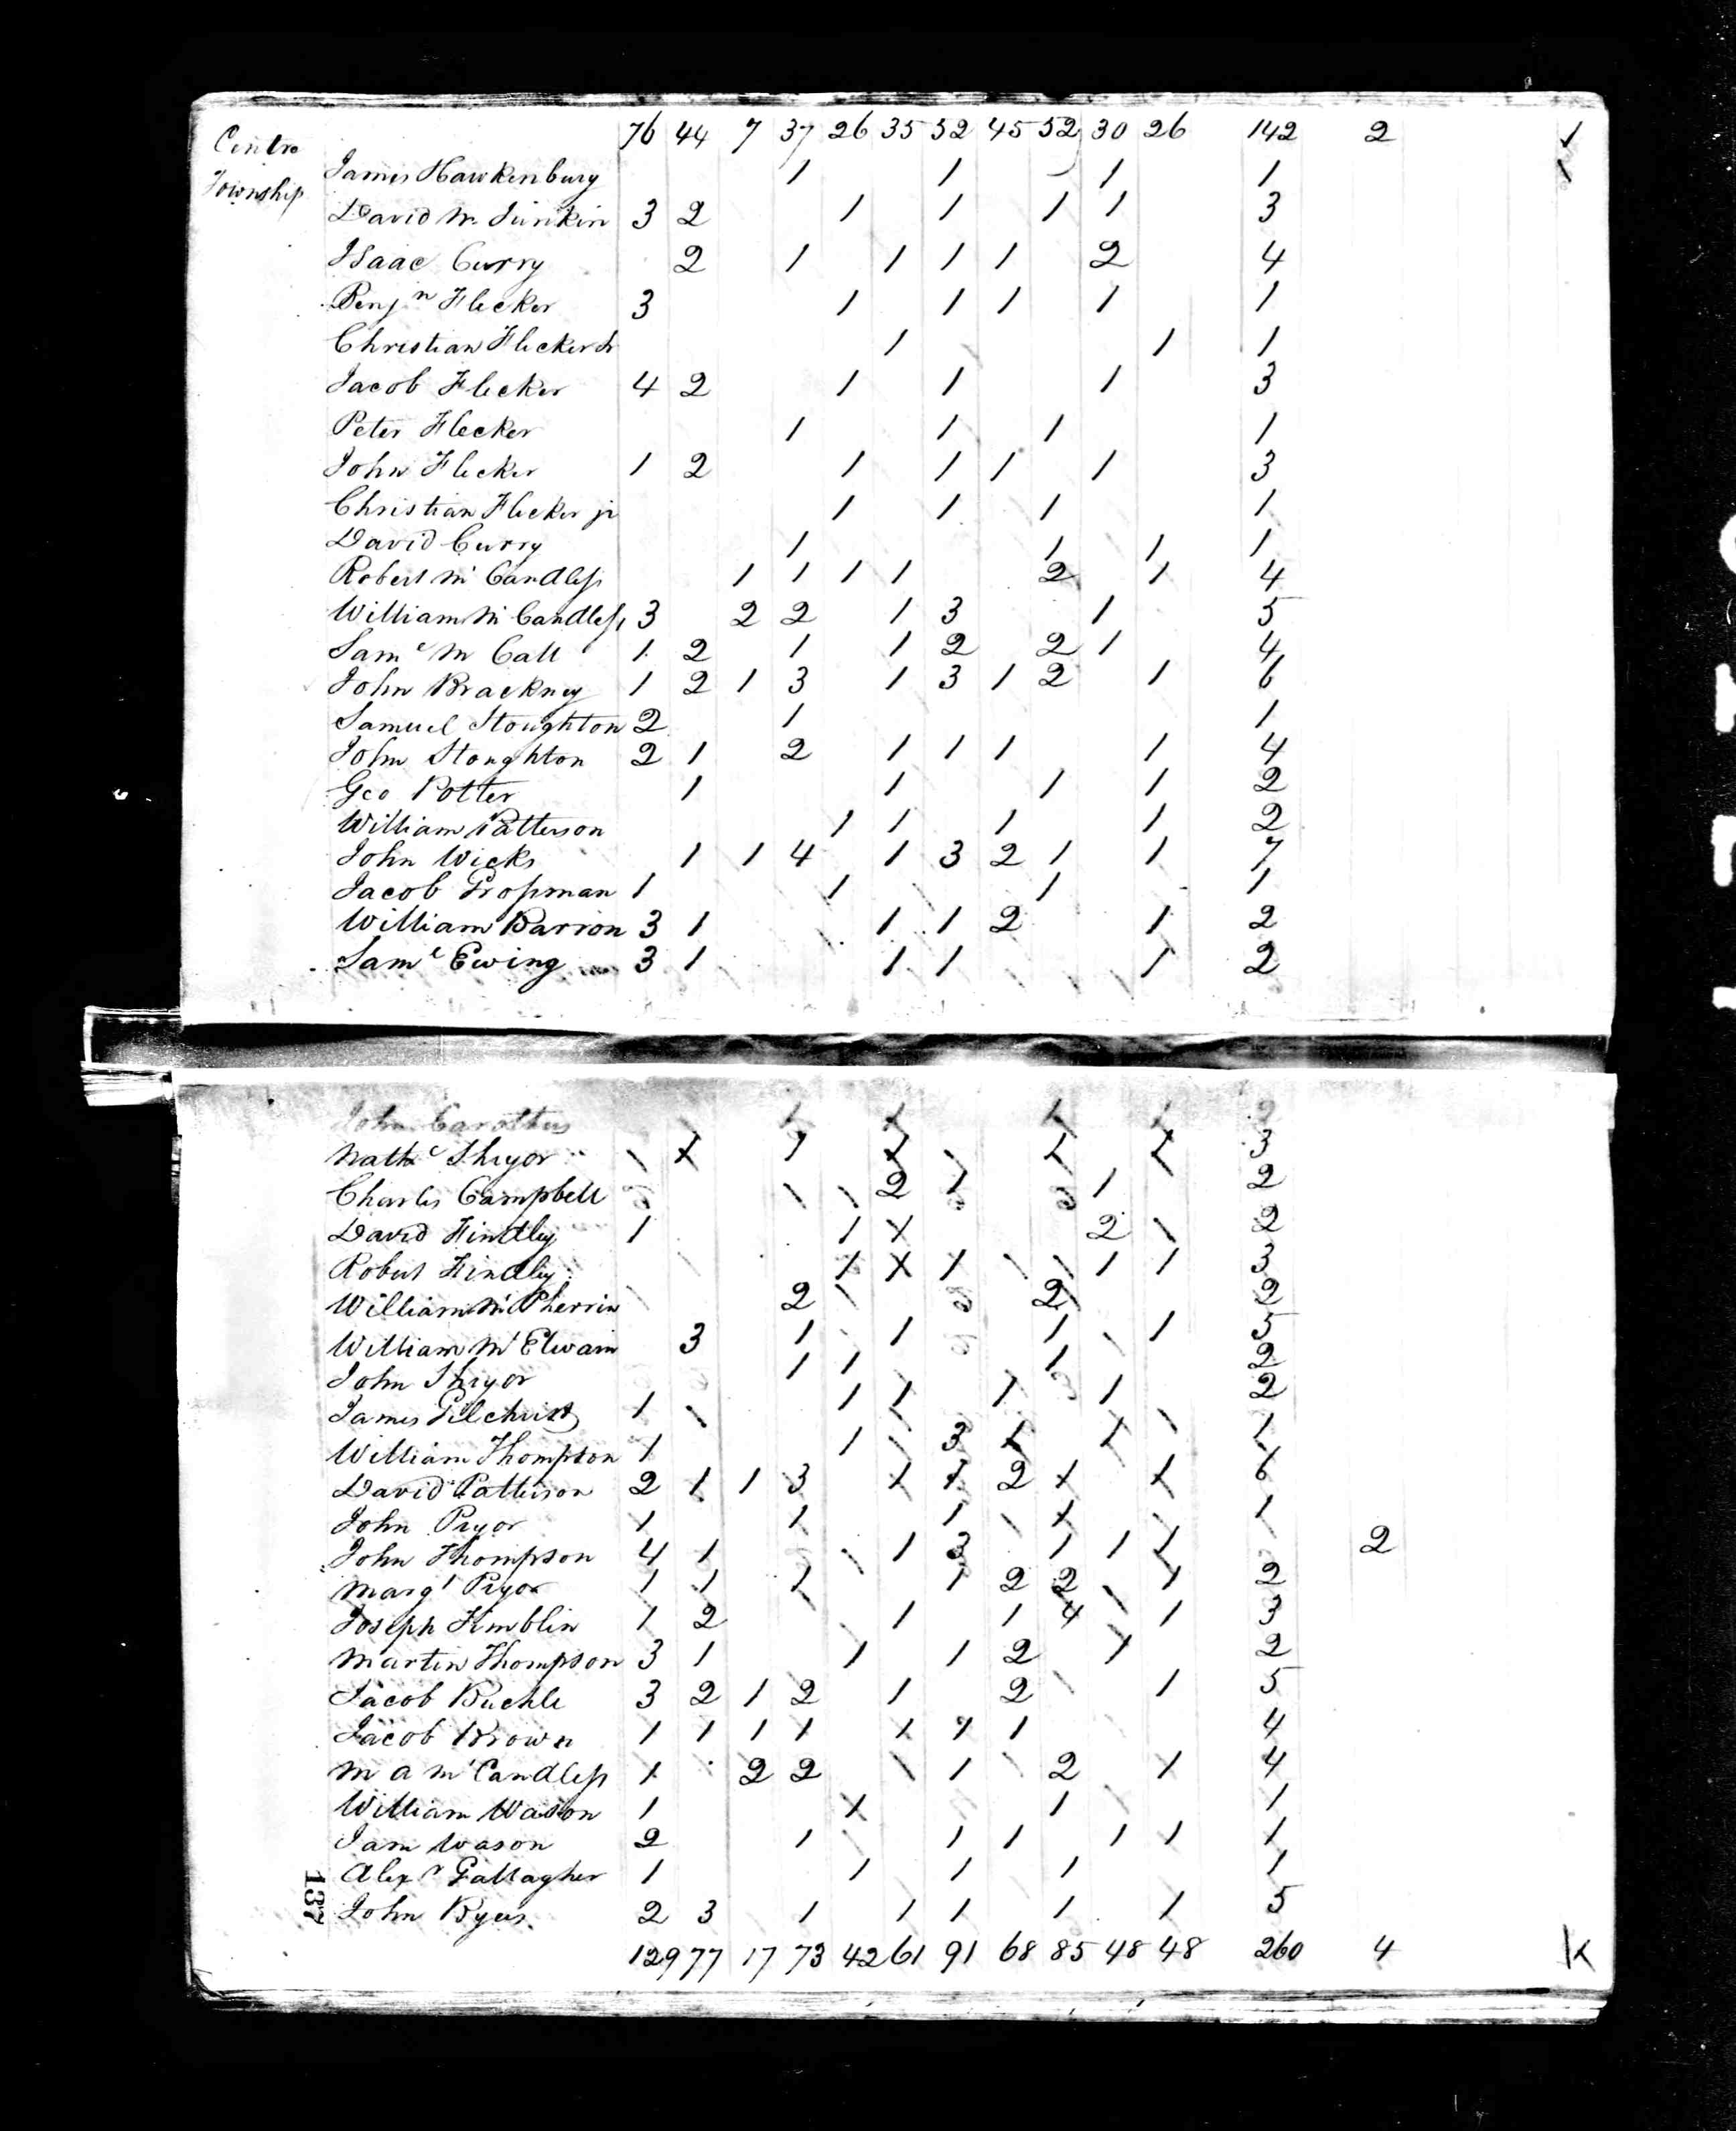 Centre 76 44 7 37 26 35 52 45 52 30 26 142 2 1
Township James Hawkenbury 1 1 1 1 1
David Mc Junkin 3 2 1 1 1 1 3
Isaac Curry 2 1 1 1 1 2 4
Benjn Flecker 3 1 1 1 1 1
Christian Flecker Sr 1 1 1
Jacob Flecker 4 2 1 1 1 3
Peter Flecker 1 1 1 1
John Flecker 1 2 1 1 1 1 3
Christian Flecker jr 1 1 1 1
David Curry 1 1 1 1
Robert Mc Candless 1 1 1 1 2 1 4
William Mc Candless 3 2 2 1 3 1 5
Saml Mc Call 1 2 1 1 2 2 1 4
John Brackney 1 2 1 3 1 3 1 2 1 6
Samuel Stoughton 2 1 1
John Stoughton 2 1 2 1 1 1 1 4
Geo Potter 1 1 1 1 2
William Patterson 1 1 1 1 2
John Wicks 1 1 4 1 3 2 1 1 7
Jacob Grossman 1 1 1 1
William Barron 3 1 1 1 2 1 2
Saml Ewing 3 1 1 1 1 2
John Carothers 1 1 1 1 2
Nathl Shryor 1 1 1 1 1 3
Charles Campbell 2 1 1 2
David Findley 1 1 1 2 2
Robert Findley 1 1 1 1 1 3
William Mc Pherrin 2 2 2
William Mc Elwain 3 1 1 1 1 5
John Shryor 1 1 1 2
James Gilchrist 1 1 1 1 1 2
William Thompson 1 1 3 1 1 1
David Patterson 2 1 1 3 1 1 2 1 1 6
John Pryor 1 1 1 1 1
John Thompson 4 1 1 3 1 1 1 2
Margt Pryor 1 1 1 1 2 2 1 2
Joseph Kimblin 1 2 1 1 4 1 3
Martin Thompson 3 1 1 1 2 1 2
Jacob Buchle 3 2 1 2 1 2 1 5
Jacob Brown 1 1 1 1 1 1 1 4
M a Mc Candless 1 2 2 1 2 1 4
William Wason 1 1 1 1
Jam Wason 2 1 1 1 1 1 1
Alexr Gallagher 1 1 1 1 1
137 John Byers 2 3 1 1 1 1 1 5
129 77 17 73 42 61 91 68 85 48 48 260 4